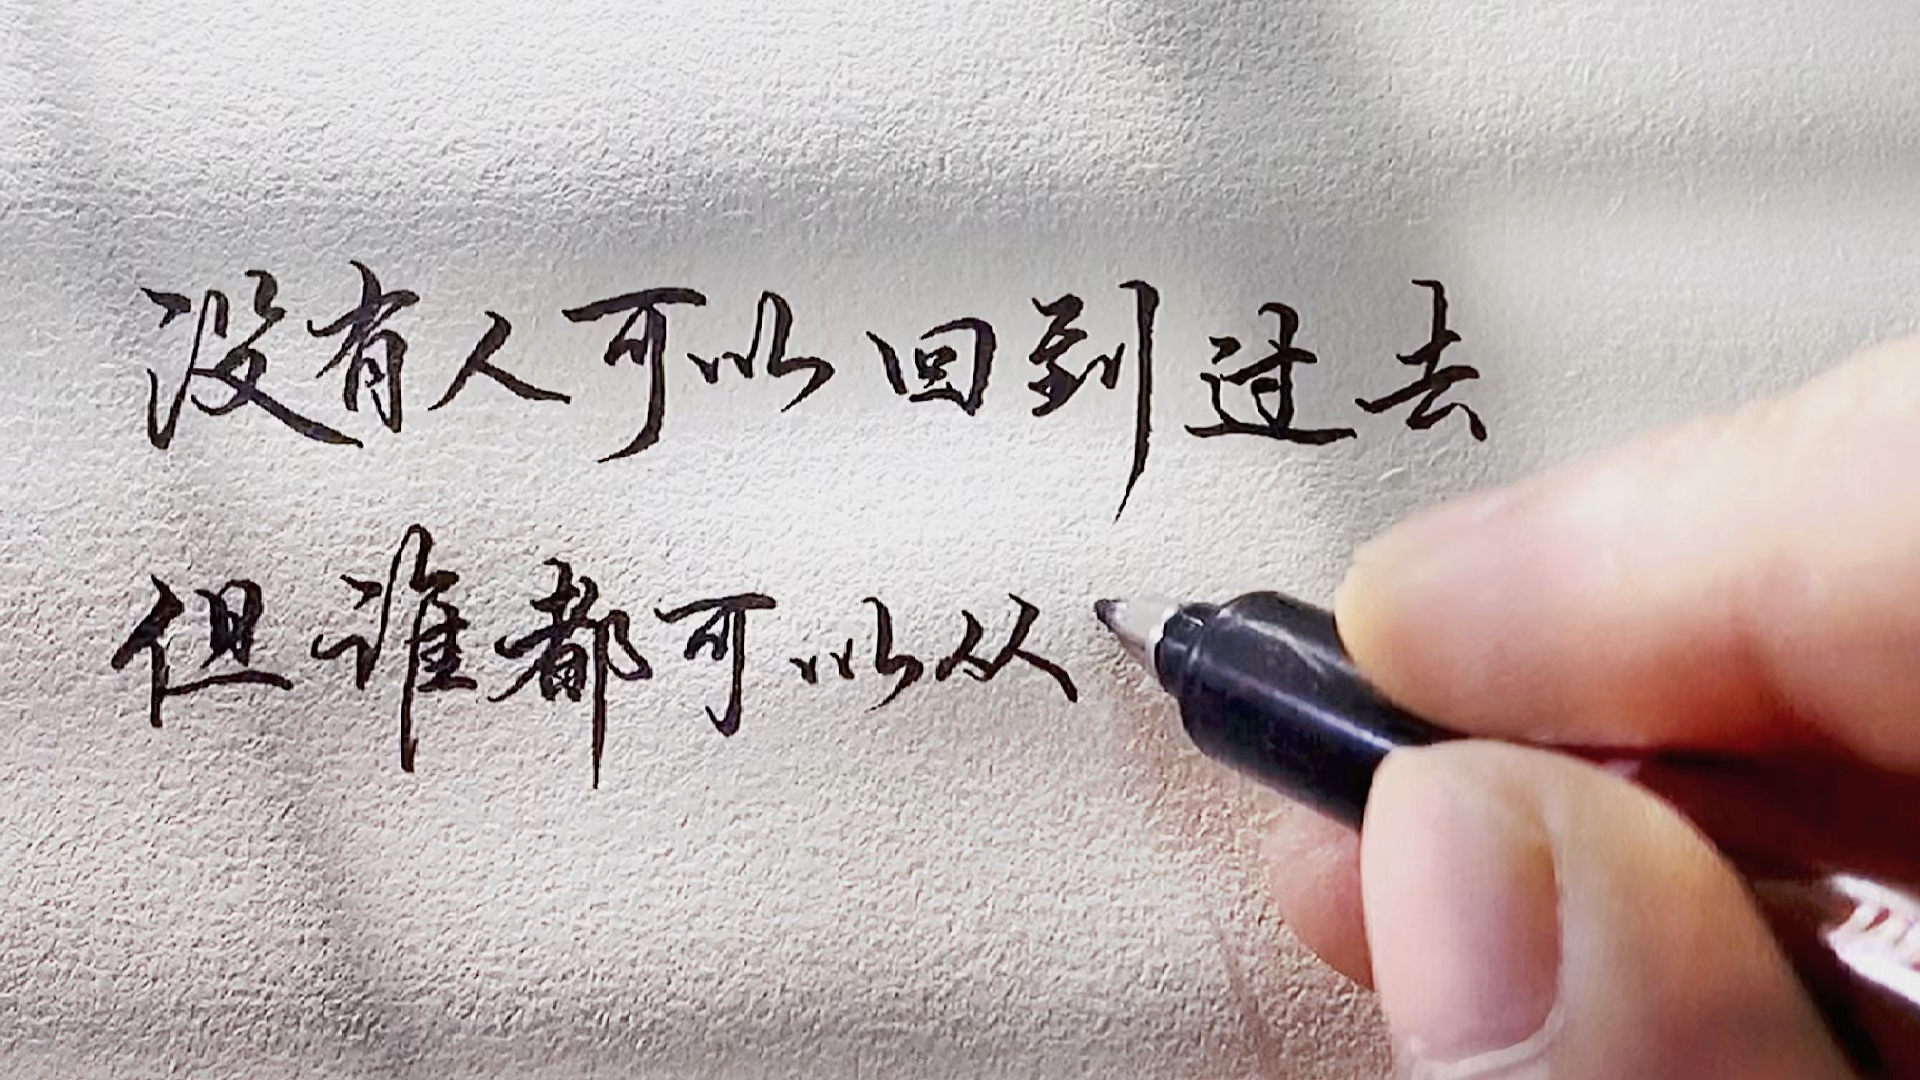 没有人可以回到过去
但谁都可以从